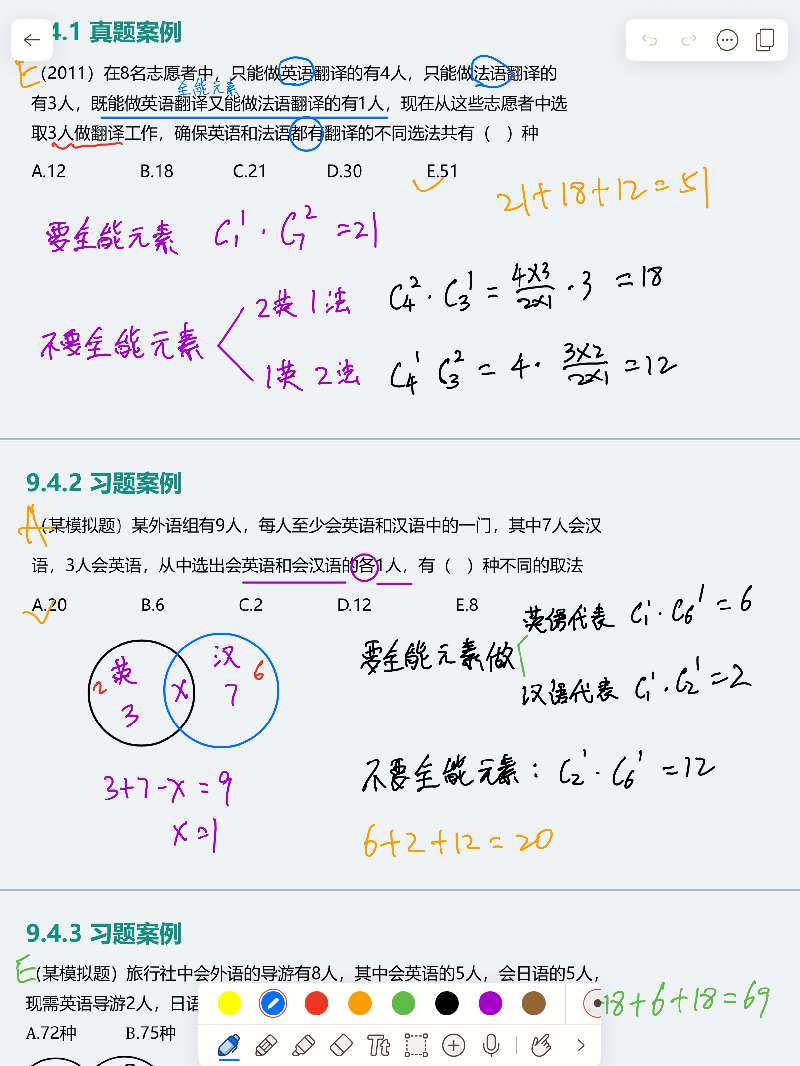 4.1 真题案例
E (2011) 在8名志愿者中，只能做英语翻译的有4人，只能做法语翻译的
全能元素
有3人，既能做英语翻译又能做法语翻译的有1人，现在从这些志愿者中选
取3人做翻译工作，确保英语和法语都有翻译的不同选法共有（ ）种
A.12 B.18 C.21 D.30 E.51
21+18+12=51
要全能元素 C₁¹·C₇²=21
不要全能元素
2英1法 C₄²·C₃¹=4×3/2×1·3=18
1英2法 C₄¹C₃²=4·3×2/2×1=12
9.4.2 习题案例
A (某模拟题) 某外语组有9人，每人至少会英语和汉语中的一门，其中7人会汉
语，3人会英语，从中选出会英语和会汉语的各1人，有（ ）种不同的取法
A.20 B.6 C.2 D.12 E.8
英 汉
2 3 X 7 6
3+7-x=9
x=1
要全能元素做
英语代表 C₁¹·C₆¹=6
汉语代表 C₁¹·C₂¹=2
不要全能元素：C₂¹·C₆¹=12
6+2+12=20
9.4.3 习题案例
E (某模拟题) 旅行社中会外语的导游有8人，其中会英语的5人，会日语的5人，
现需英语导游2人，日语
18+6+18=69
A.72种 B.75种
Tt